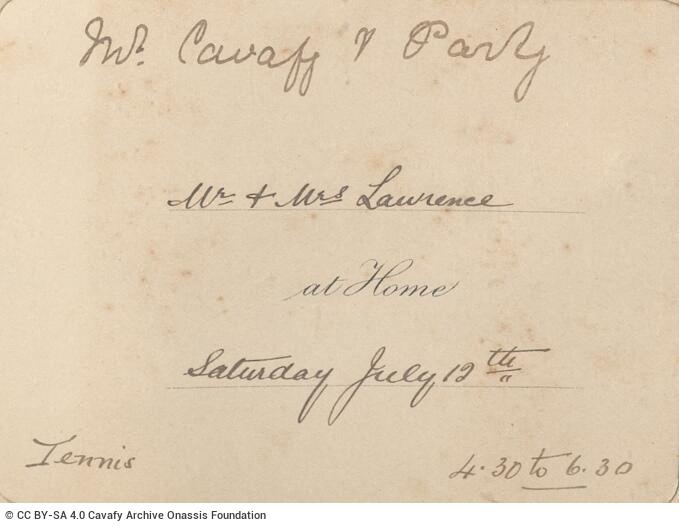 Mr. Cavaffy & Party
Mr & Mrs Lawrence
at Home
Saturday July 12th
Tennis
4.30 to 6.30
© CC BY-SA 4.0 Cavafy Archive Onassis Foundation